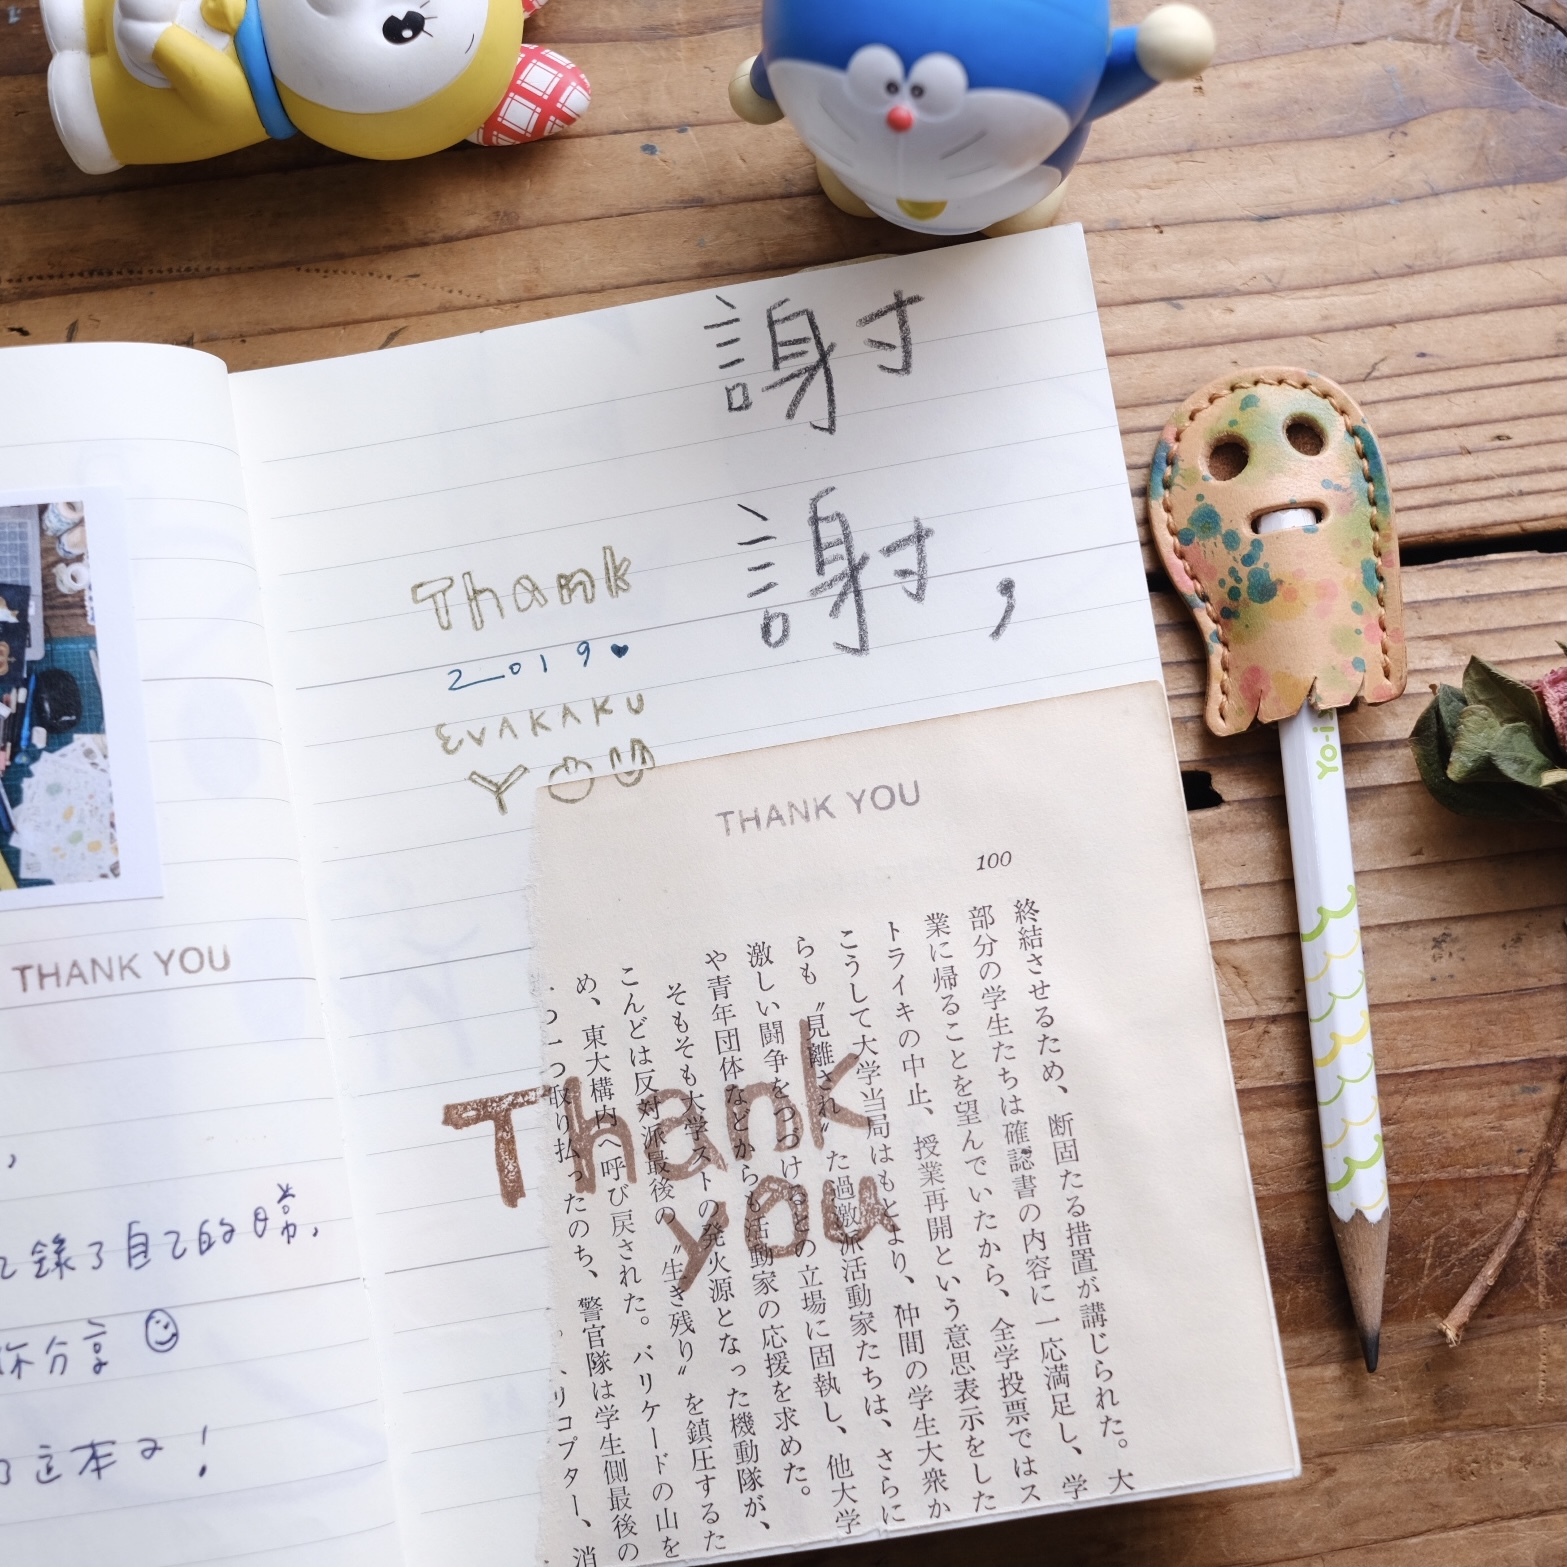 THANK YOU
錄了自己的日常,
你分享
本子!
謝
謝,
Thank
2019♥
EVAKAKU
YOU
THANK YOU
100
終結させるため、断固たる措置が講じられた。大
部分の学生たちは確認書の内容に一応満足し、学
業に帰ることを望んでいたから、全学投票ではス
トライキの中止、授業再開という意思表示をした
こうして大学当局はもとより、仲間の学生大衆か
らも〝見離され〟た過激派活動家たちは、さらに
激しい闘争をつづけるとの立場に固執し、他大学
や青年団体などからも活動家の応援を求めた。
そもそも大学ストの発火源となった機動隊が、
こんどは反対派最後の〝生き残り〟を鎮圧するた
め、東大構内へ呼び戻された。バリケードの山を
つ一つ取り払ったのち、警官隊は学生側最後の
リコプター、消
Thank
you